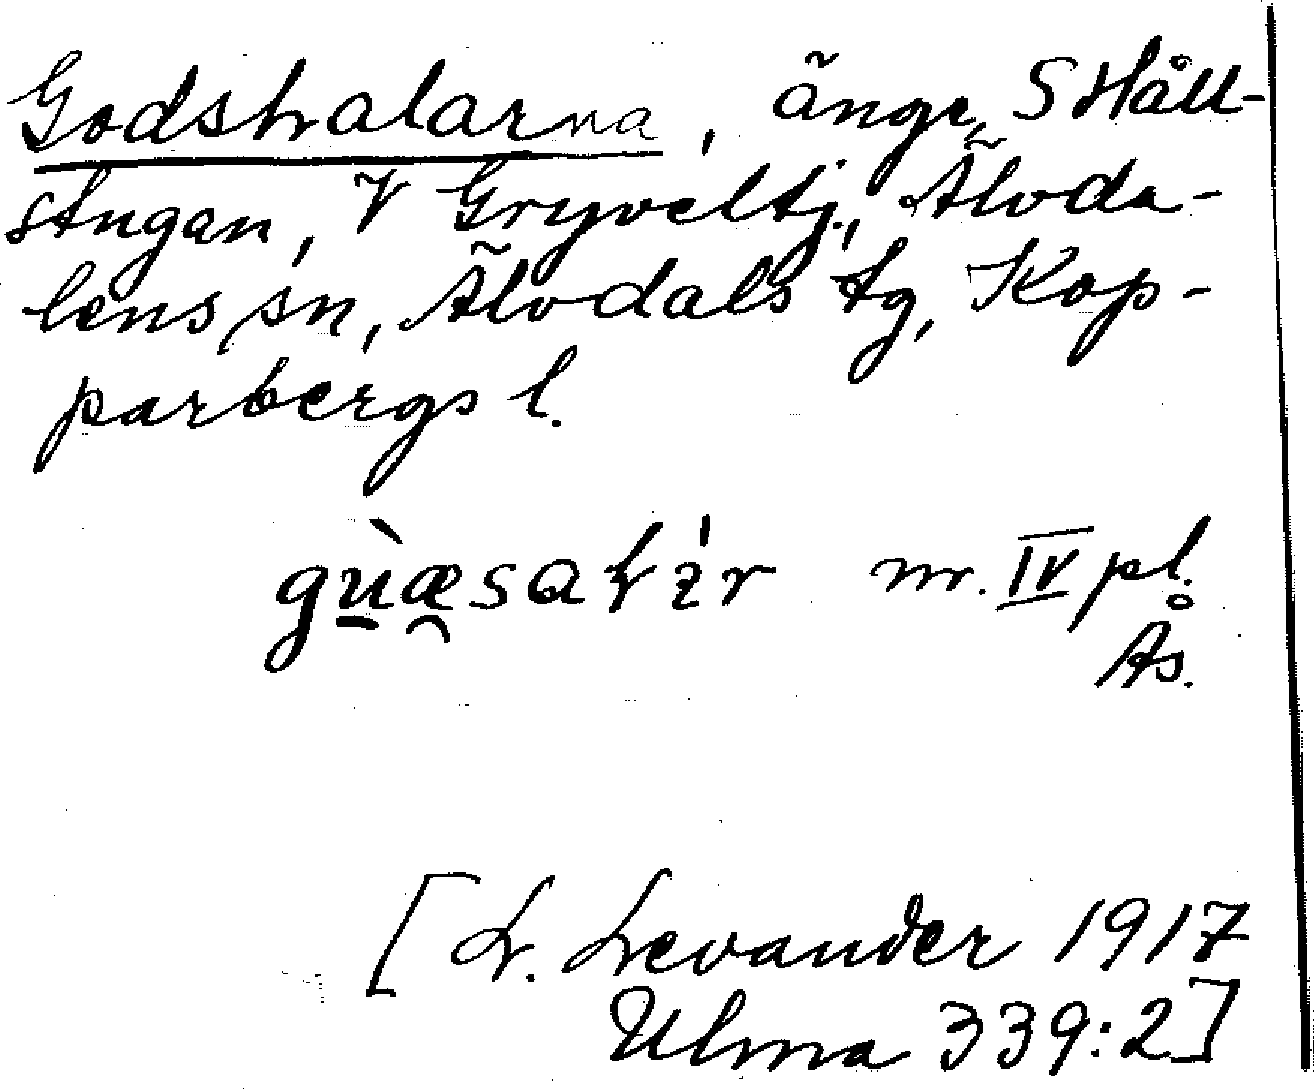 Godshalarna, änge, S Håll-
stugan, V Gryveltj., Älvda-
lens sn, Älvdals tg, Kop-
parbergs l.
m. IV pl.
Ås.
[L. Levander 1917
Ulma 339:2]